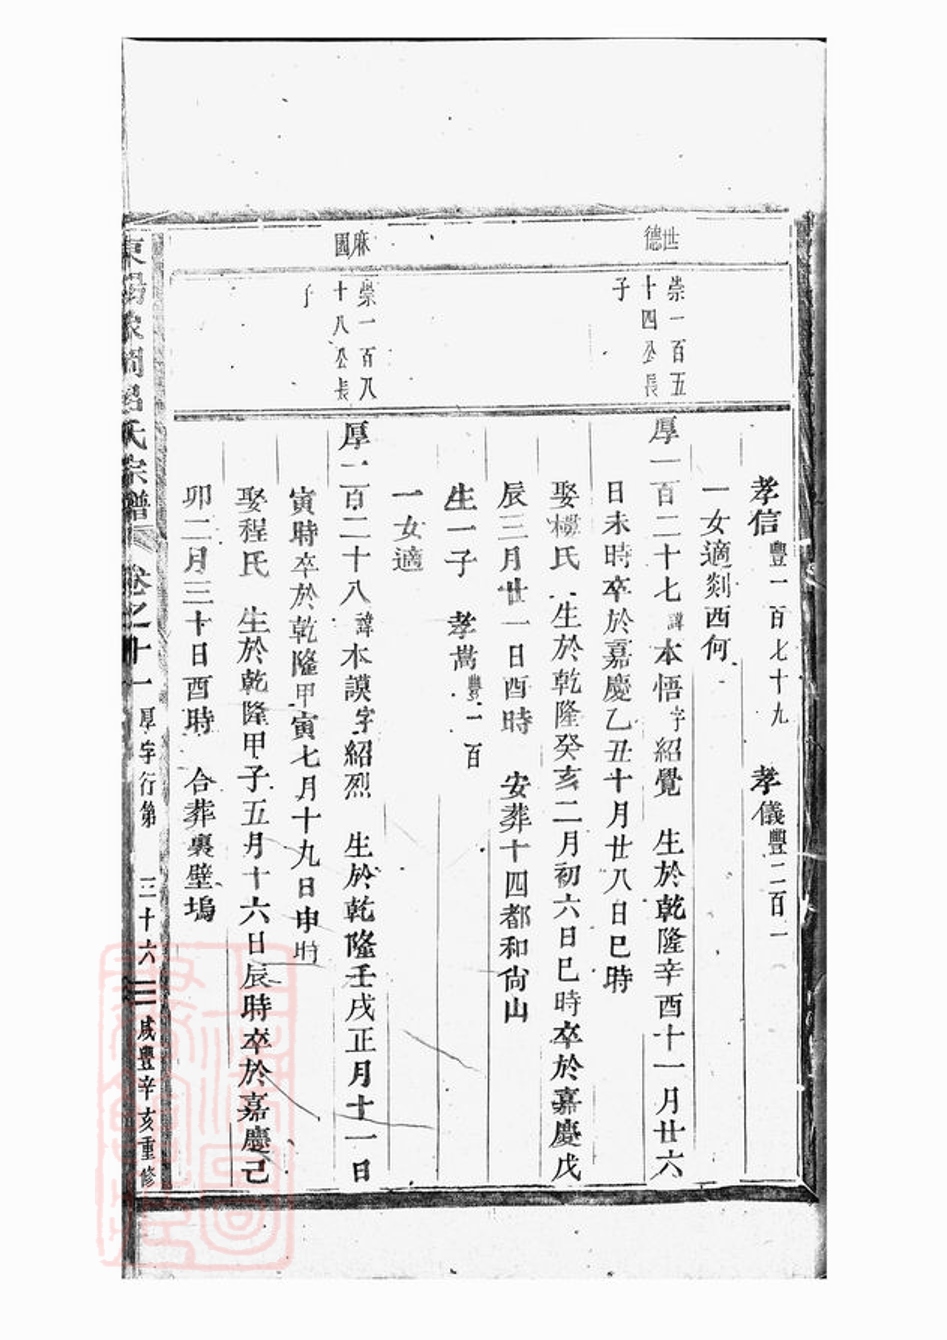 孝信豐一百七十九　孝儀豐二百一
一女適剡西何
世德
崇一百五十四公長子
厚一百二十七諱本悟字紹覺　生於乾隆辛酉十一月廿六
日未時卒於嘉慶乙丑十月廿八日巳時
娶樓氏　生於乾隆癸亥二月初六日巳時卒於嘉慶戊
辰三月廿一日酉時　安葬十四都和尙山
生一子　孝嵩豐一百
一女適
麻園
崇一百八十八公長子
厚一百二十八諱本謨字紹烈　生於乾隆壬戌正月十一日
寅時卒於乾隆甲寅七月十九日申時
娶程氏　生於乾隆甲子五月十六日辰時卒於嘉慶己
卯二月三十日酉時　合葬裏壁塢
東陽　呂氏宗譜　卷之十一　厚字行第　三十六　咸豐辛亥重修